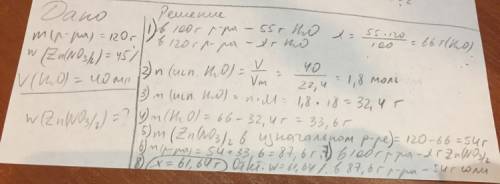 Дано
m(р-ра)=120г
w(Zn(NO3)2)=45%
V(H2O)=40мл
w(Zn(NO3)2)=?
Решение
1) в 100г р-ра - 55г H2O
в 120г р-ра - xг H2O
x = 55·120/100 = 66г(H2O)
2) n(исп. H2O) = V/Vm = 40/22,4 = 1,8 моль
3) m(исп. H2O) = n·M = 1,8·18 = 32,4г
4) m(H2O) = 66-32,4г = 33,6г
5) m(Zn(NO3)2 в изначальном р-ре) = 120-66 = 54г
6) m(р-ра) = 54+33,6 = 87,6г 7) в 100г р-ра - xг Zn(NO3)2
8) (x = 61,64г) Ответ. w=61,64% в 87,6г р-ра - 54г соли